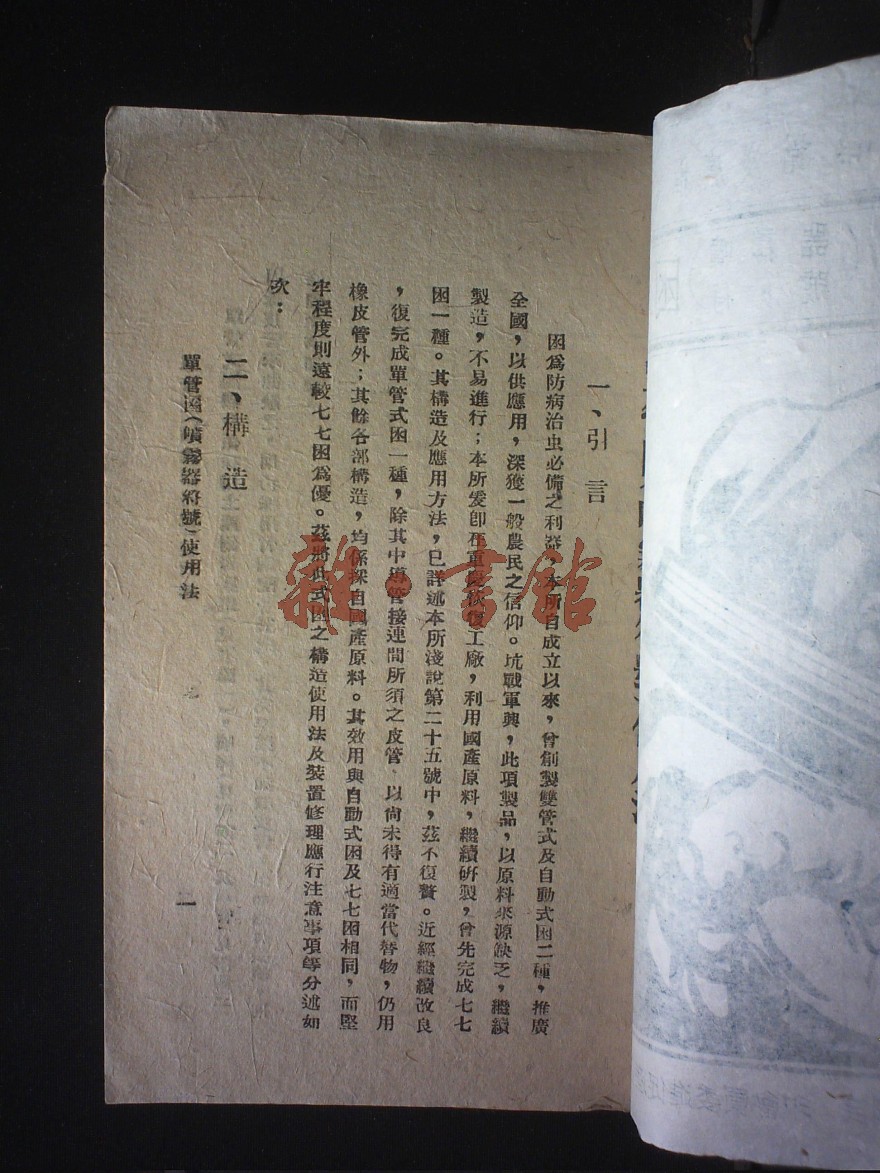 一、引言
困為防病治虫必備之利器，本所自成立以來，曾創製雙管式及自動式困二種，推廣
全國，以供應用，深獲一般農民之信仰。坑戰軍興，此項製品，以原料來源缺乏，繼續
製造，不易進行；本所爰即在重慶恢復工廠，利用國產原料，繼續研製，曾先完成七七
困一種。其構造及應用方法，已詳述本所淺說第二十五號中，茲不復贅。近經繼續改良
，復完成單管式困一種，除其中導管接連間所須之皮管、以尙未得有適當代替物，仍用
橡皮管外；其餘各部構造，均係採自國產原料。其效用與自動式困及七七困相同，而堅
牢程度則遠較七七困為優。茲將此式困之構造使用法及裝置修理應行注意事項等分述如
次：
二、構造
單管困（噴霧器符號）使用法
一
雜·書館